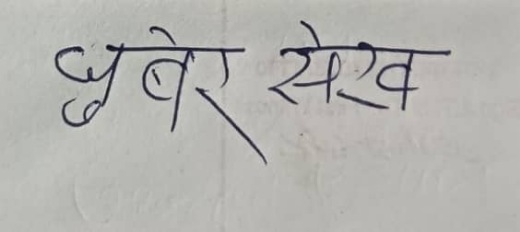 धुबेर सेख